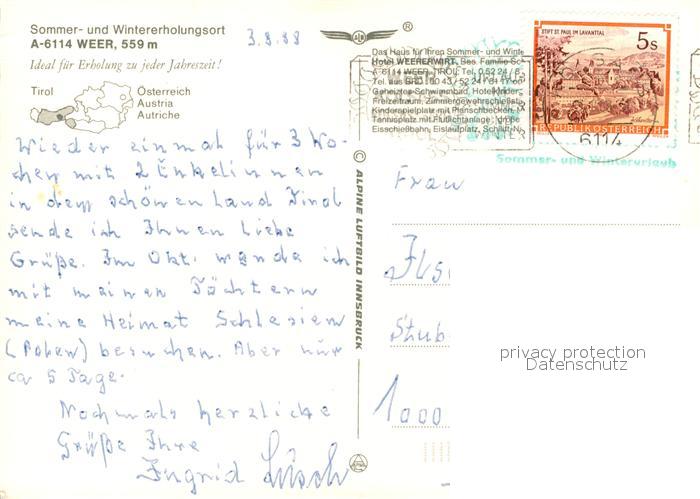 Sommer- und Wintererholungsort
A-6114 WEER, 559 m
Ideal für Erholung zu jeder Jahreszeit!
Tirol
Österreich
Austria
Autriche
3.8.88
Wieder einmal für 3 Wo-
chen mit 2 Enkelinnen
in dem schönen Land Tirol
sende ich Ihnen liebe
Grüße. Im Okt. werde ich
mit meinen Töchtern
meine Heimat Schlesien
(Polen) besuchen. Aber nur
ca 5 Tage.
Nochmals herzliche
Grüße Ihre
Ingrid
© ALPINE LUFTBILD INNSBRUCK
®
Das Haus für Ihren Sommer- und Winte
Hotel WEERERWIRT, Bes. Familie Sc
A-6114 WEER, TIROL, Tel. 0 52 24 / 8
Geheiztes Schwimmbad, Hotelkinder
Freizeitraum, Zimmergewehrschießsta
Kinderspielplatz mit Planschbecken, T
Tennisplatz mit Flutlichtanlage, große
Eisschießbahn, Eislaufplatz, Schilift-N
STIFT ST. PAUL IM LAVANTTAL
5 S
REPUBLIK ÖSTERREICH
6114
Sommer- und Winterurlaub
Frau
Ils
Stub
1000
privacy protection
Datenschutz